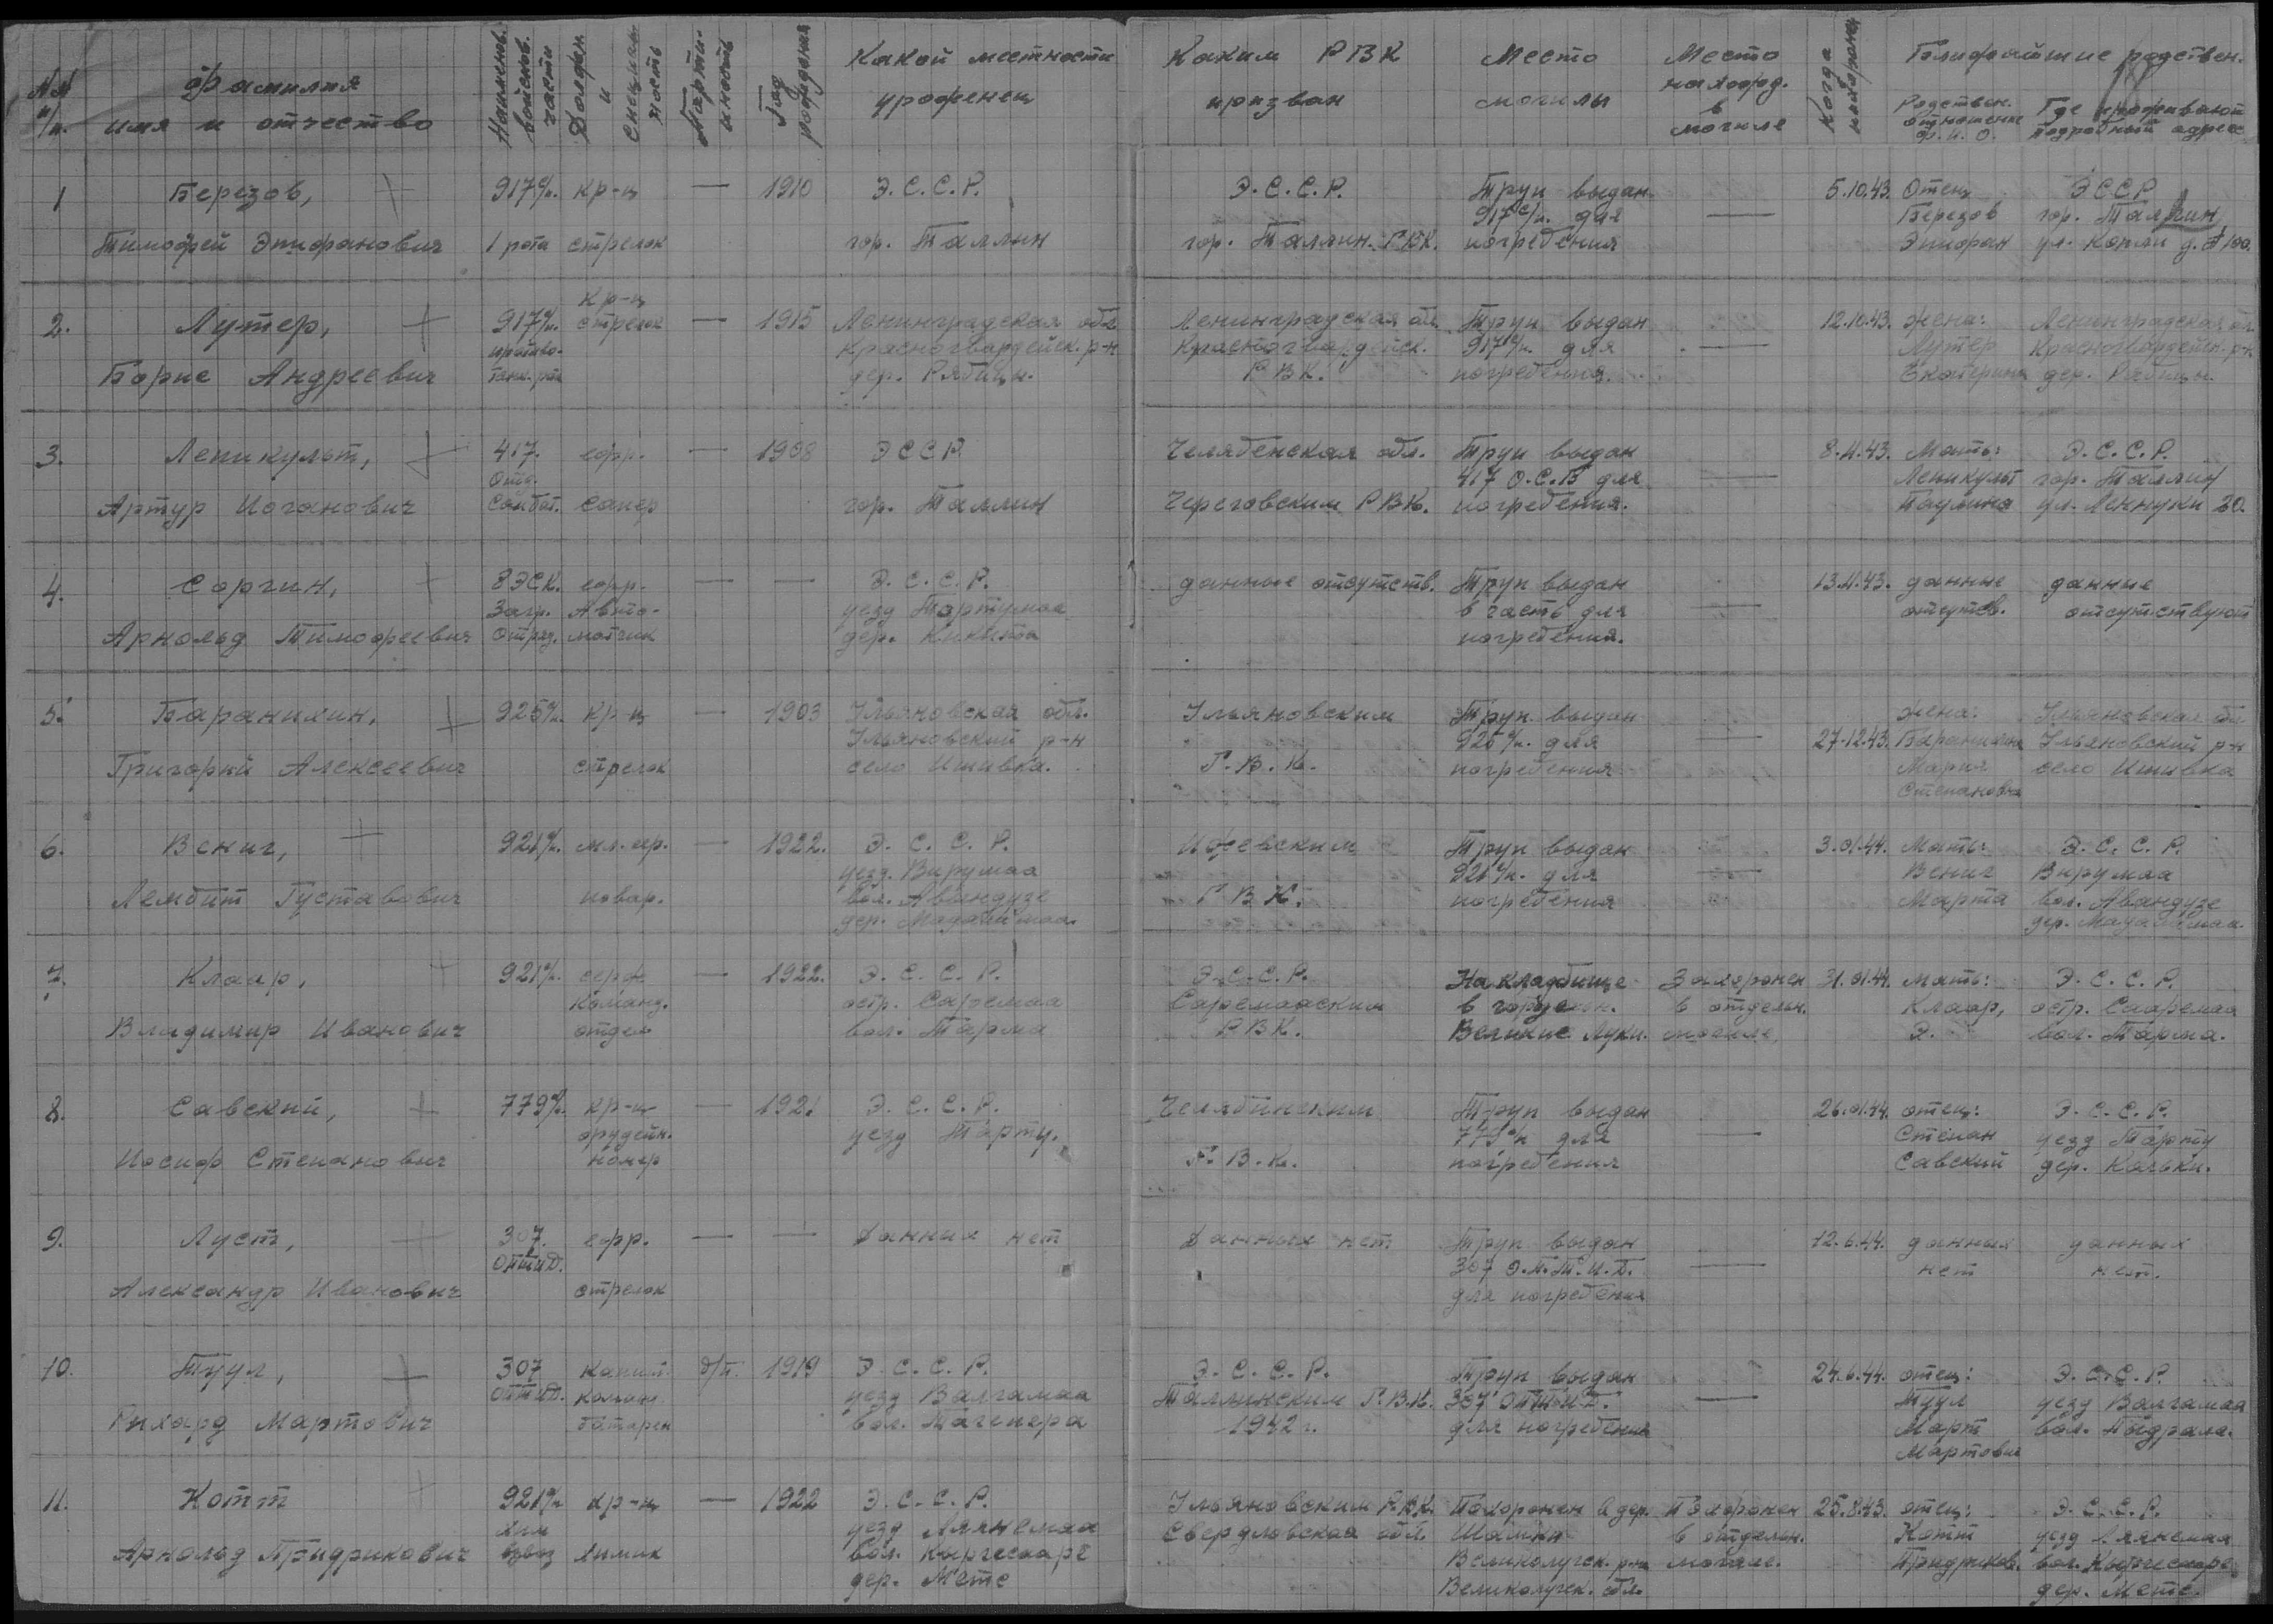 №№ п/п. Фамилия имя и отчество Наименов. войсков. части Должн. и специальность Партийность Год рождения Какой местности уроженец Каким РВК призван Место могилы Место нахожд. в могиле Когда похоронен Ближайшие родствен.
Родствен. отношение ф. и. о. Где проживают подробный адрес
1 Березов, 917 с/п. кр-ц — 1910 Э. С. С. Р. Э. С. С. Р. Труп выдан 5.10.43. Отец ЭССР
917 с/п. для — Березов гор. Таллин
Тимофей Эпифанович 1 рота стрелок гор. Таллин гор. Таллин. РВК. погребения Эпифан ул. Копли д. № 100.
кр-ц
2. Лутер, 917 с/п. стрелок — 1915 Ленинградская обл Ленинградская обл. Труп выдан 12.10.43. жена: Ленинградская обл.
противо- Красногвардейск. р-н Красногвардейск. 917 с/п. для — Лутер Красногвардейск. р-н
Борис Андреевич танк. рота дер. Рябицы. РВК. погребения. Екатерина дер. Рябицы.
3. Лепикульт, 417. ефр. — 1908 ЭССР Челябенская обл. Труп выдан 8.11.43. Мать: Э. С. С. Р.
Отд. 417 О.С.Б для — Лепикульт гор. Таллин
Артур Иоганович Сапбат. сапер гор. Таллин Череговским РВК. погребения. Паулина ул. Леннуки 20.
4. Соргин, 8 ЭСК. ефр. — — Э. С. С. Р. данные отсутств. Труп выдан 13.11.43. данные данные
Загр. Авто- уезд Тартумаа в часть для — отсутств. отсутствуют
Арнольд Тимофеевич отряд. матчик дер. Кикита погребения.
5. Баранихин, 925 с/п. кр-ц — 1903 Ульяновская обл. Ульяновским Труп выдан жена: Ульяновская обл
Ульяновский р-н 925 с/п. для — 27.12.43. Баранихина Ульяновский р-н
Григорий Алексеевич стрелок село Ишивка. Р. В. К. погребения Мария село Ишивка
Степановна
6. Вениг, 921 с/п. мл. сер. — 1922. Э. С. С. Р. Ижевским Труп выдан 3.01.44. Мать: Э. С. С. Р.
уезд. Вирумаа 921 с/п. для — Вениг Вирумаа
Лембит Густавович повар. вол. Авандузе РВК. погребения Марта вол. Авандузе
дер. дер.
7. Клаар, 921 с/п. серж — 1922. Э. С. С. Р. Э. С. С. Р. На кладбище Захоронен 31.01.44. мать: Э. С. С. Р.
команд. остр. Саремаа Саремааским в городе в отдельн. Клаар, остр. Сааремаа
Владимир Иванович отдел вол. Тарма РВК. Великие Луки. могиле, Э. вол. Тарма.
8. Савский, 779 с/п. кр-ц — 1921 Э. С. С. Р. Челябинским Труп выдан 26.01.44. отец: Э. С. С. Р.
орудейн. уезд Тарту. 779 с/п для — Степан уезд Тарту
Иосиф Степанович номер Р. В. К. погребения Савский дер. Кольки.
9. Луст, 307. ефр. — — Данных нет Данных нет. Труп выдан 12.6.44. данных данных
ОПТИД. 307 О.П.Т.И.Д. — нет нет.
Александр Иванович стрелок для погребения
10. Туул, 307 капит. б/п. 1919 Э. С. С. Р. Э. С. С. Р. Труп выдан 24.6.44. отец: Э. С. С. Р.
ОПТИД. команд. уезд Валгамаа Таллинским Р.В.К. 307 ОПТИД. — Туул уезд Валгамаа
Рихард Мартович батареи вол. Тагепера 1942 г. для погребения Март вол. Пыдрала.
Мартович
11. Котт 921 с/п кр-ц — 1922 Э. С. С. Р. Ульяновским Р.В.К. Похоронен в дер. Похоронен 25.8.43. отец: Э. С. С. Р.
хим уезд Ляянемаа Свердловская обл. в отдельн. Котт уезд Лянемаа
Арнольд Придрикович взвод химик вол. Кыргесааре Великолукск. р-на могиле. Придриков. вол. Кыргесааре
дер. Мете Великолукск. обл. дер. Мете.